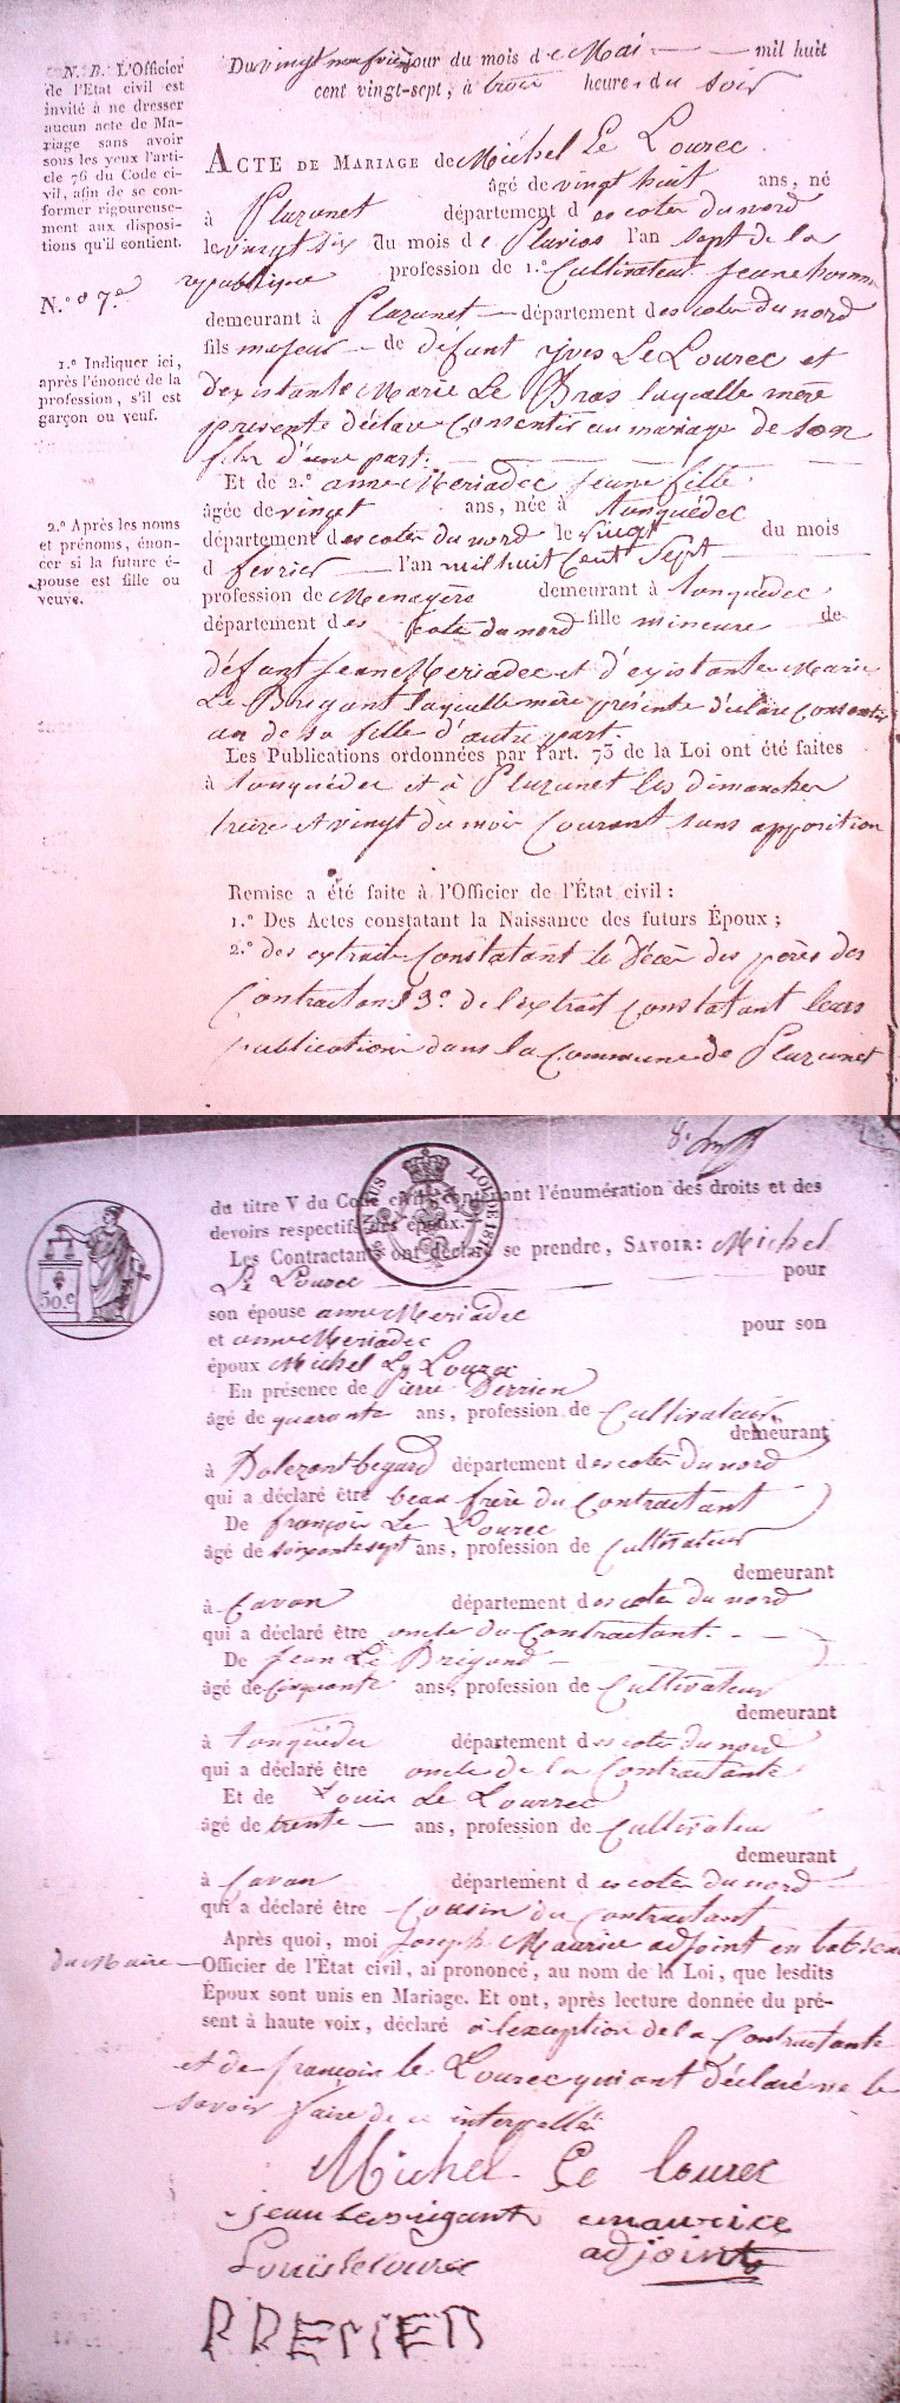 N. B. L'Officier
de l'Etat civil est
invité à ne dresser
aucun acte de Ma-
riage sans avoir
sous les yeux l'arti-
cle 76 du Code ci-
vil, afin de se con-
former rigoureuse-
ment aux disposi-
tions qu'il contient.
N.º 7.e
1.º Indiquer ici,
après l'énoncé de la
profession, s'il est
garçon ou veuf.
2.º Après les noms
et prénoms, énon-
cer si la future é-
pouse est fille ou
veuve.
Du vingt neuvième jour du mois de Mai mil huit
cent vingt-sept, à trois heures du soir
ACTE DE MARIAGE de Michel Le Lourec
âgé de vingt huit ans, né
à Pluzunet département des cotes du nord
le vingt six du mois de Pluvios l'an sept de la
republique profession de 1.º Cultivateur jeune homme
demeurant à Pluzunet département des cotes du nord
fils majeur de défunt yves Le Lourec et
d'existante Marie Le Bras laquelle mère
presente déclare Consentir au mariage de son
fils d'une part.
Et de 2.º anne Meriadec jeune fille
âgée de vingt ans, née à tonquédec
département des cotes du nord le vingt du mois
d fevrier l'an mil huit Cent Sept
profession de Menagère demeurant à tonquédec
département des cotes du nord fille mineure de
défunt Jean Meriadec et d'existante Marie
Le Brigant laquelle mère présente déclare consentir
au de sa fille d'autre part.
Les Publications ordonnées par l'art. 73 de la Loi ont été faites
à tonquédec et à Pluzunet les dimanches
treize et vingt du mois Courant sans opposition
Remise a été faite à l'Officier de l'État civil :
1.º Des Actes constatant la Naissance des futurs Époux ;
2.º des extraits Constatant le Décès des pères des
Contractans 3º de l'extrait Constatant leurs
publications dans la Commune de Pluzunet
du titre V du Code civil, contenant l'énumération des droits et des
devoirs respectifs des époux.
50.c
Les Contractants ont déclaré se prendre, SAVOIR: Michel
Le Lourec pour
son épouse anne Meriadec
et anne Meriadec pour son
époux Michel Le Lourec
En présence de Pierre Derrien
âgé de quarante ans, profession de Cultivateur
demeurant
à Botezont begard département des cotes du nord
qui a déclaré être beau frère du Contractant
De françois Le Lourec
âgé de soixante sept ans, profession de Cultivateur
demeurant
à Cavan département des cotes du nord
qui a déclaré être oncle du Contractant.
De Jean Le Brigand
âgé de Cinquante ans, profession de Cultivateur
demeurant
à tonquédec département des cotes du nord
qui a déclaré être oncle de la Contractante
Et de Louis Le Lourrec
âgé de trente ans, profession de Cultivateur
demeurant
à Cavan département des cotes du nord
qui a déclaré être Cousin du Contractant
Après quoi, moi Joseph Maurice adjoint en l'absence
du Maire Officier de l'État civil, ai prononcé, au nom de la Loi, que lesdits
Époux sont unis en Mariage. Et ont, après lecture donnée du pré-
sent à haute voix, déclaré à l'exception de la Contractante
et de françois le Lourec qui ont déclaré ne le
savoir faire de ce interpellés
Michel Le lourec
jean Le Brigant maurice
Louis le lourec adjoint